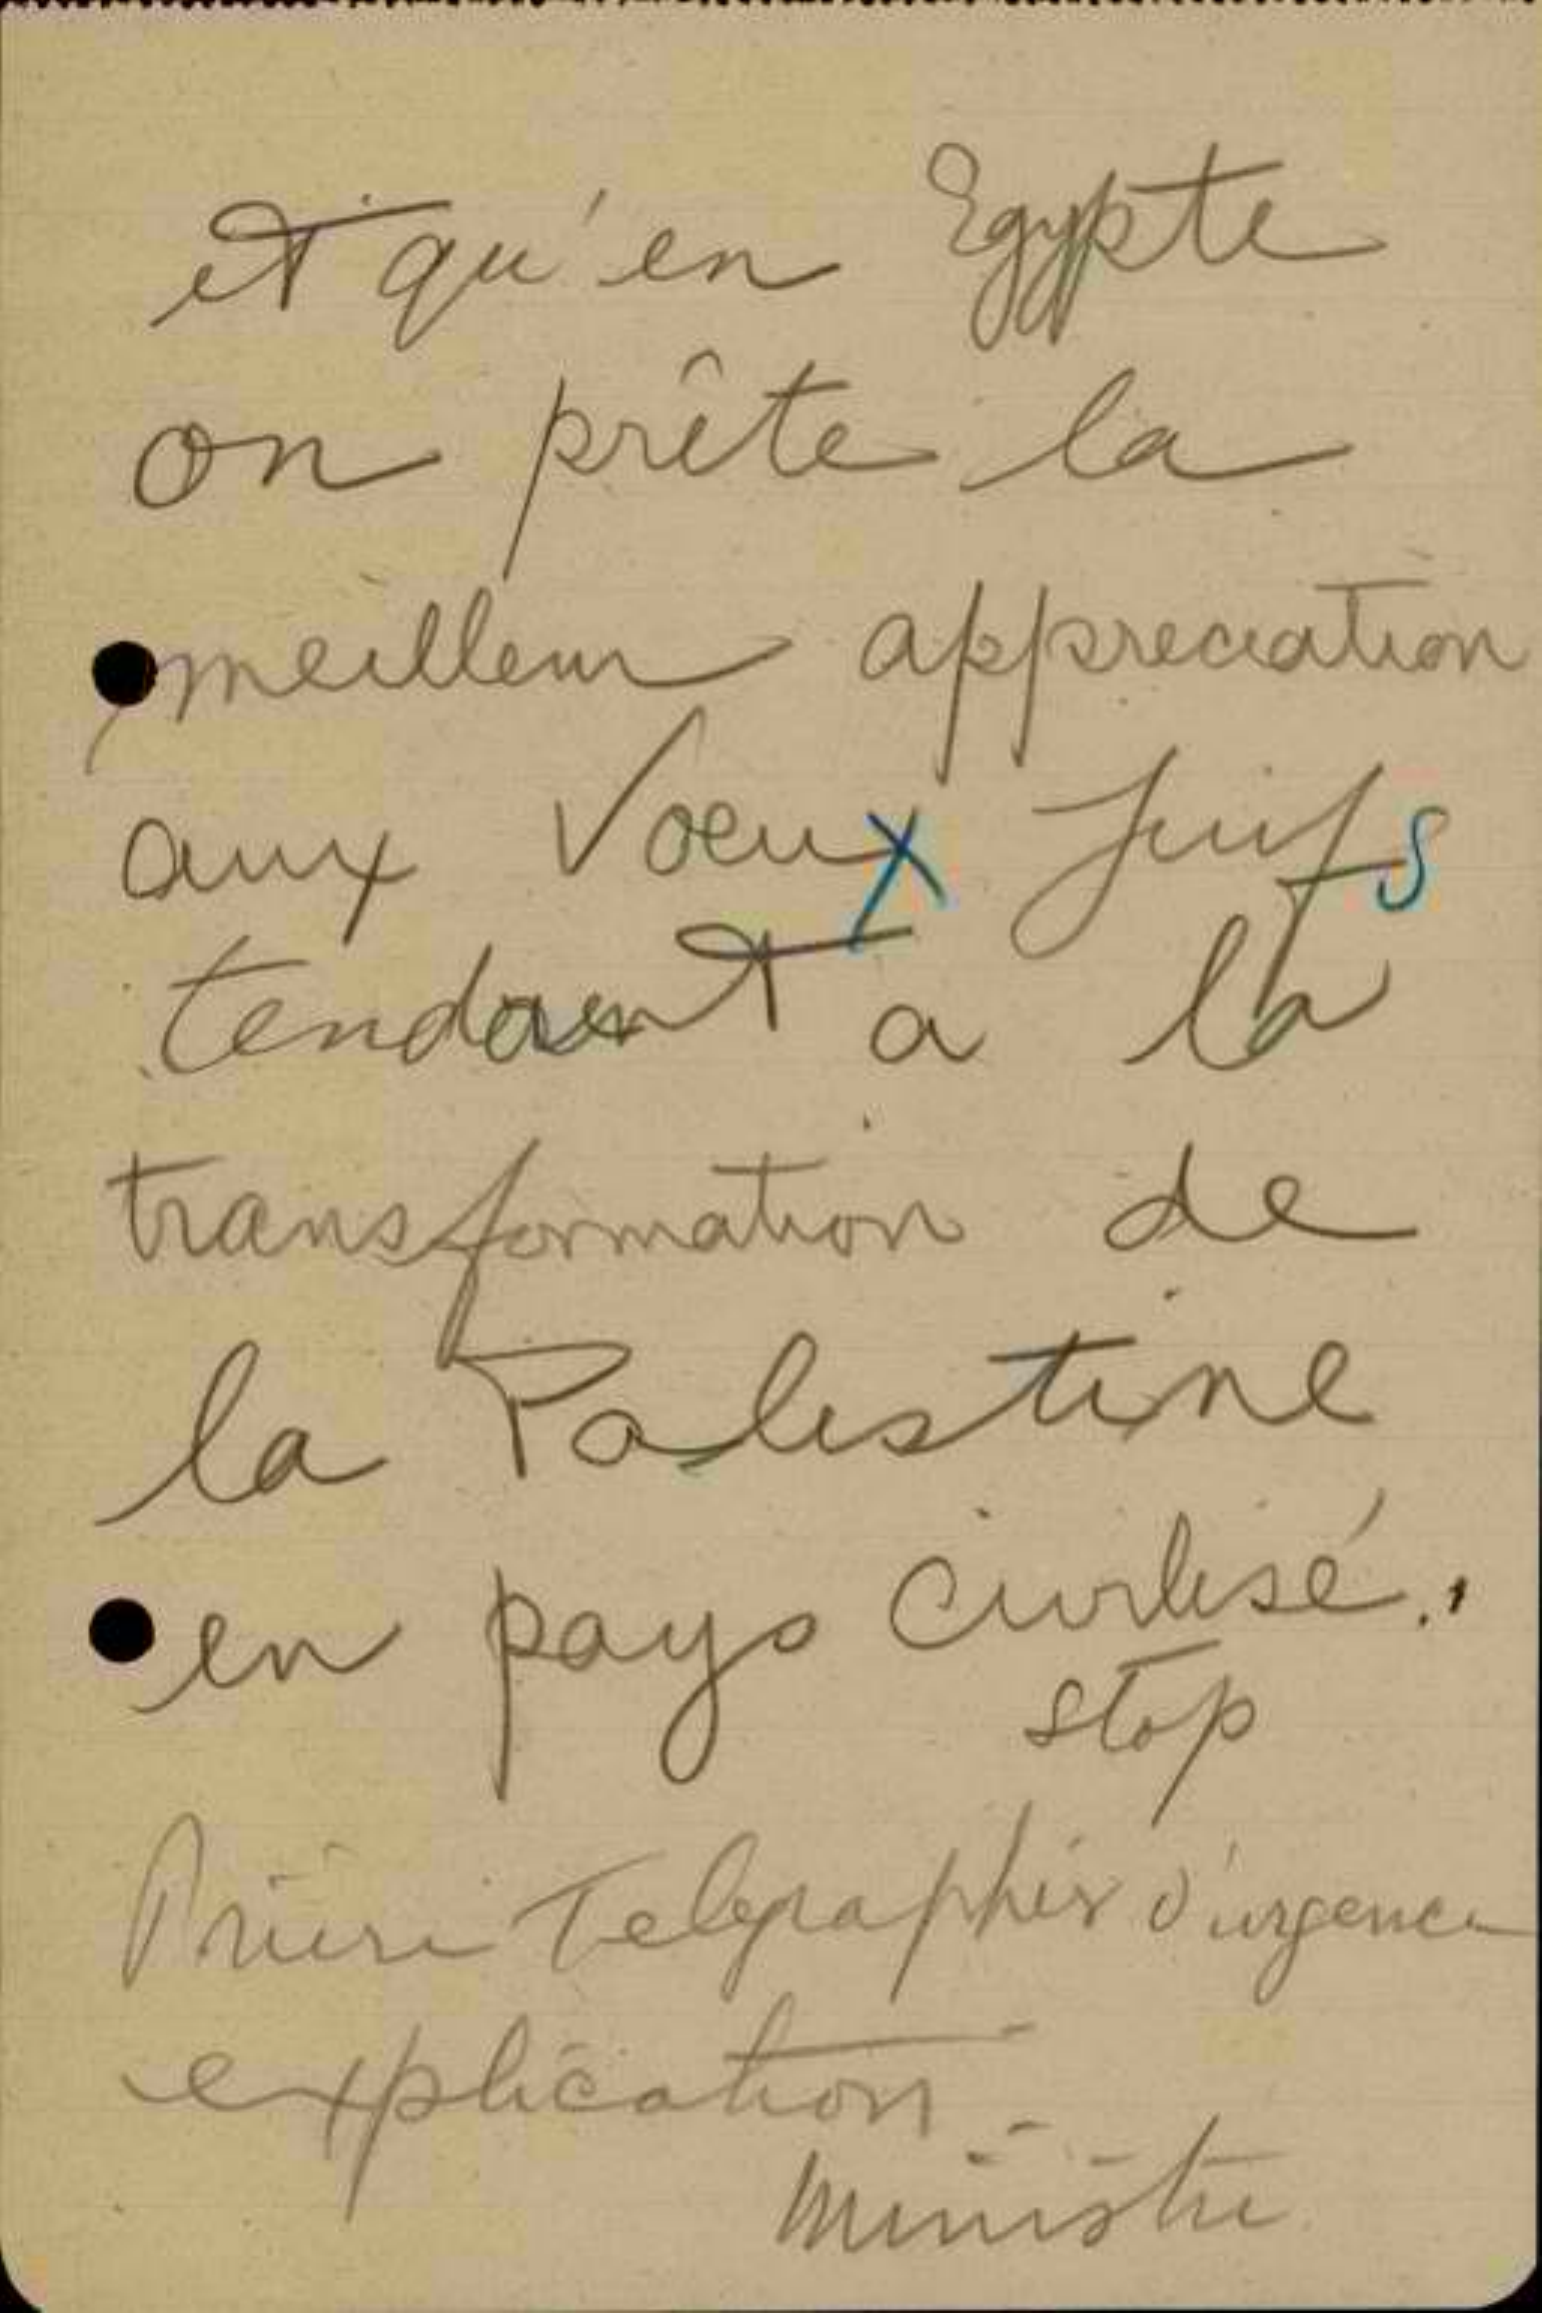 et qu'en Egypte
on prête la
meilleur appreciation
aux Voeux Juifs
tendant a la
transformation de
la Palestine
en pays civilisé.
stop
Prière Telegraphier d'urgence
explication -
Ministre